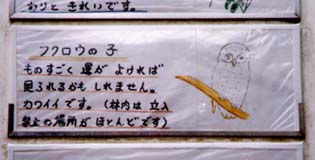 わりと きれいです。
フクロウの子
ものすごく 運が よければ
見られるかも しれません。
カワイイです。(林内は 立入
禁止の場所が ほとんどです)